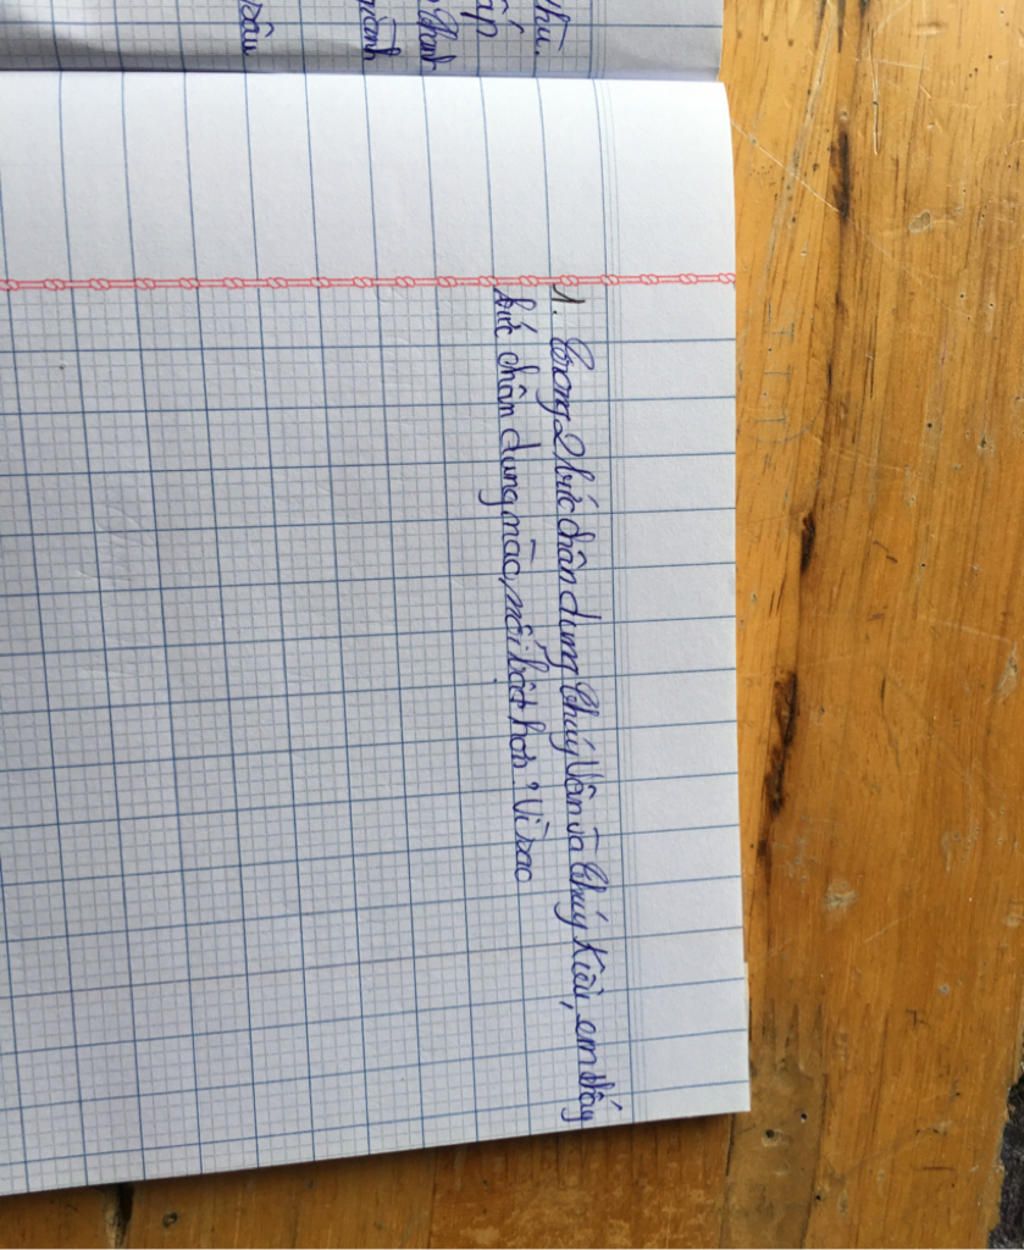 thu.
ấp
Thanh
giành
sâu
1. Trong 2 bức chân dung Thúy Vân và Thúy Kiều, em thấy
bức chân dung nào, nổi bật hơn? Vì sao